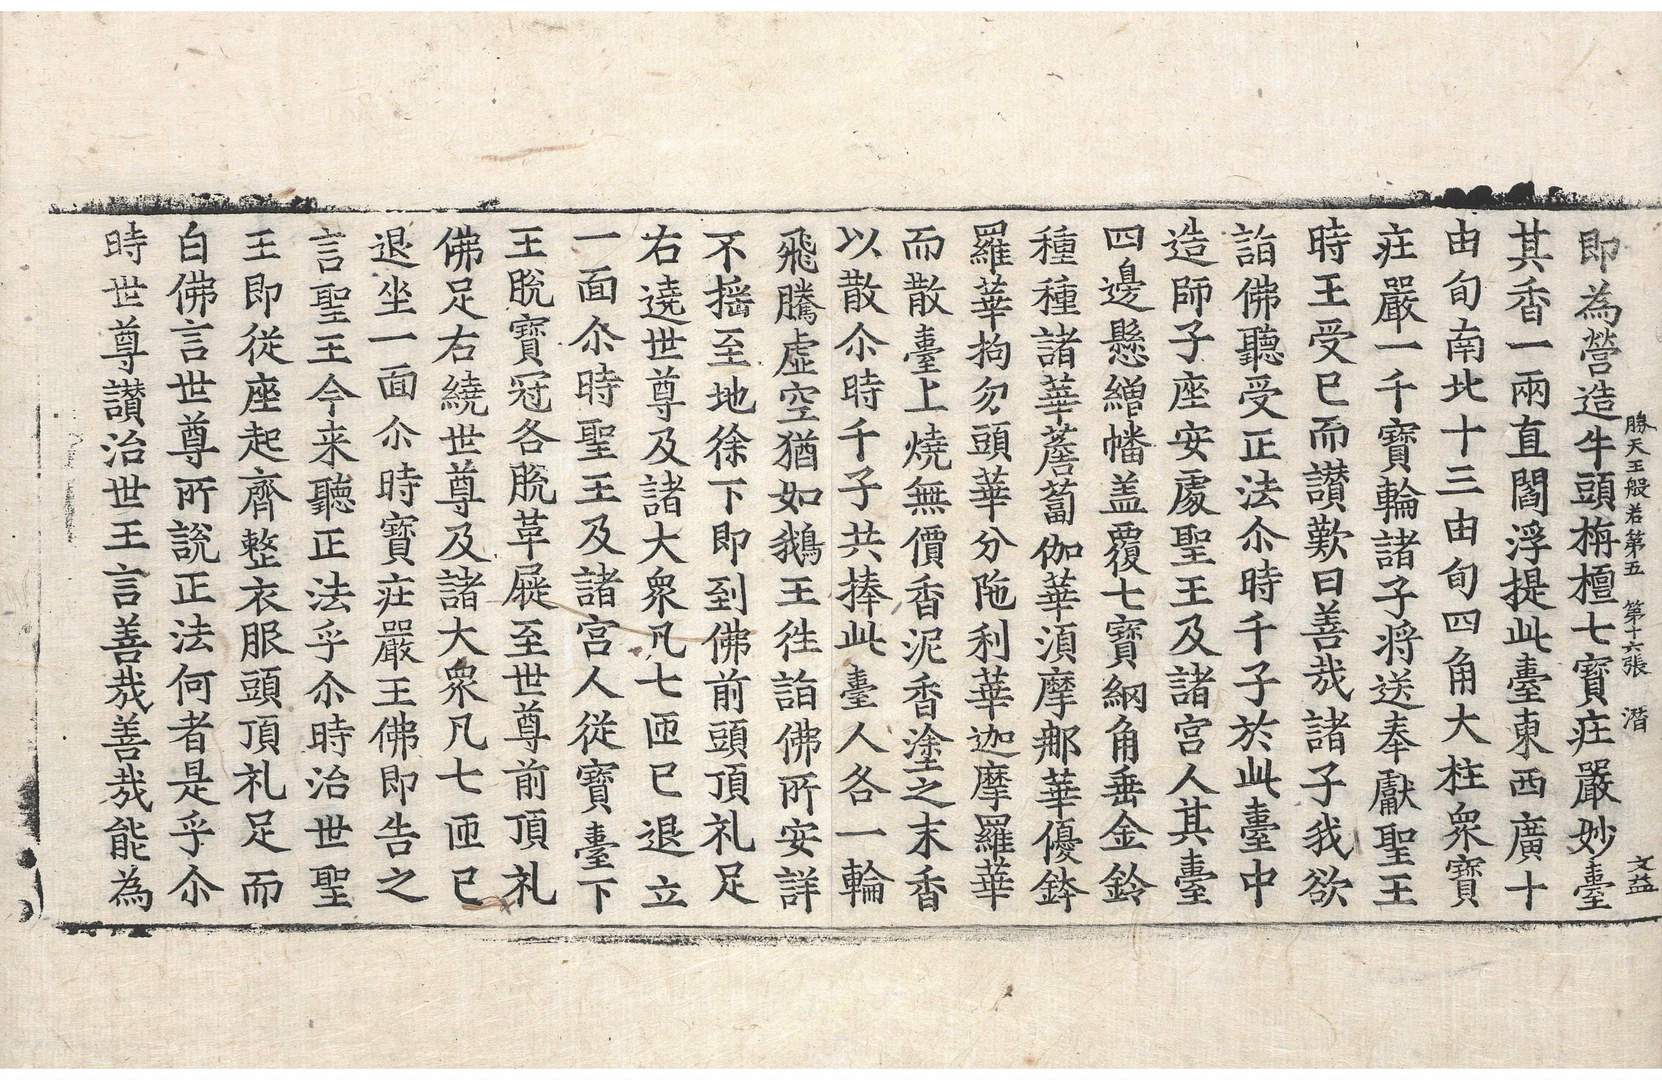 勝天王般若第五　第十六張　潛
文益
即為營造牛頭栴檀七寶庄嚴妙臺
其香一兩直閻浮提此臺東西廣十
由旬南北十三由旬四角大柱衆寶
庄嚴一千寶輪諸子將送奉獻聖王
時王受已而讃歎曰善哉諸子我欲
詣佛聽受正法尒時千子於此臺中
造師子座安處聖王及諸宮人其臺
四邊懸繒幡盖覆七寶網角垂金鈴
種種諸華薝蔔伽華湏摩那華優鉢
羅華拘勿頭華分陁利華迦摩羅華
而散臺上燒無價香泥香塗之末香
以散尒時千子共捧此臺人各一輪
飛騰虛空猶如鵝王徃詣佛所安詳
不揺至地徐下即到佛前頭頂礼足
右遶世尊及諸大衆凡七匝已退立
一面尒時聖王及諸宮人從寶臺下
王脫寶冠各脫革屣至世尊前頂礼
佛足右繞世尊及諸大衆凡七匝已
退坐一面尒時寶庄嚴王佛即告之
言聖王今来聽正法乎尒時治世聖
王即從座起齊整衣服頭頂礼足而
白佛言世尊所說正法何者是乎尒
時世尊讃治世王言善哉善哉能為